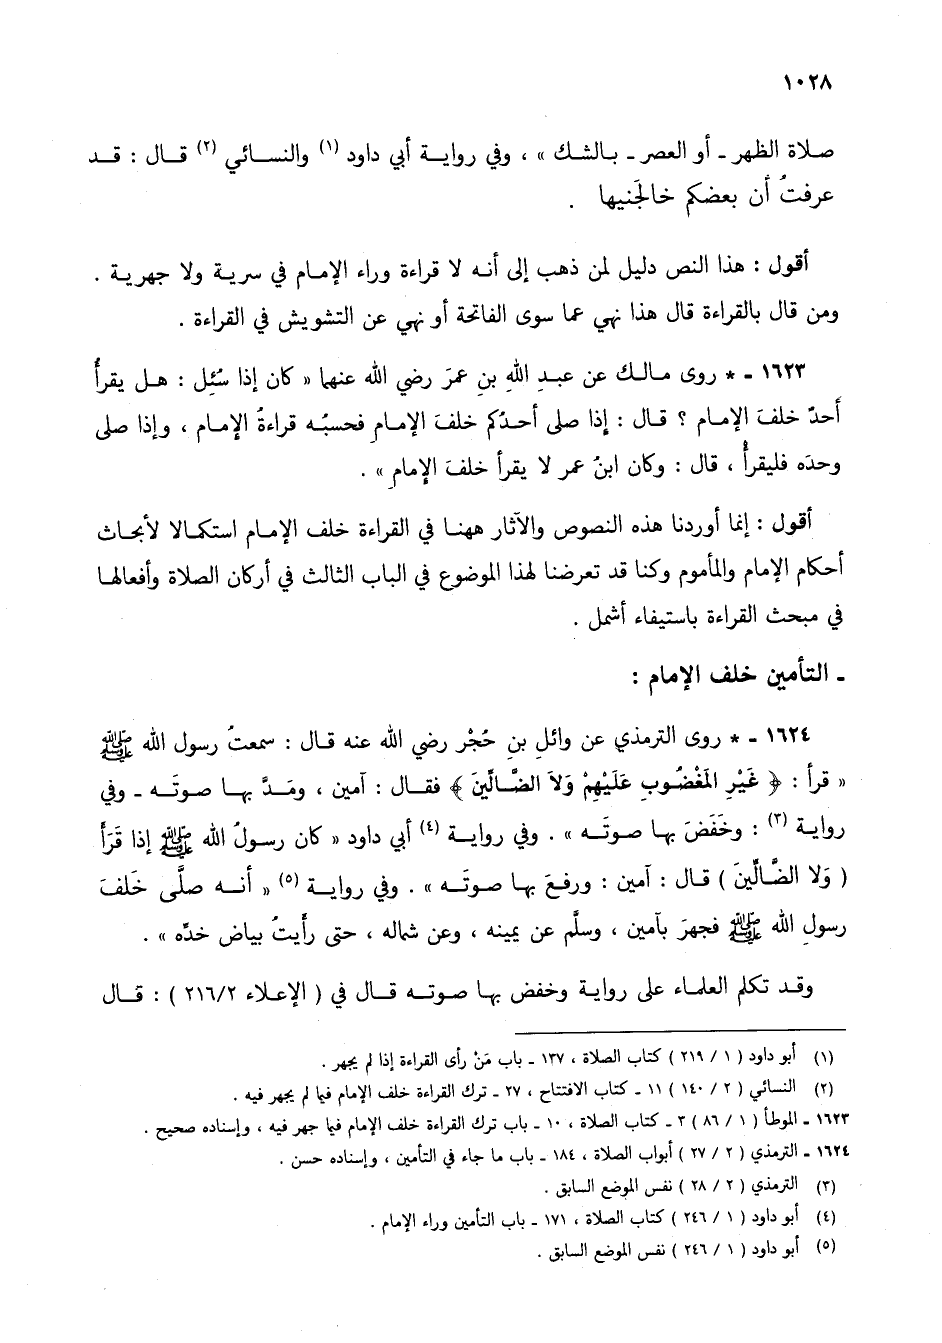 ١٠٢٨
صلاة الظهر ـ أو العصر ـ بالشك » ، وفي رواية أبي داود (١) والنسائي (٢) قال : قد
عرفتُ أن بعضكم خالَجنيها .
أقول : هذا النص دليل لمن ذهب إلى أنه لا قراءة وراء الإمام في سرية ولا جهرية .
ومن قال بالقراءة قال هذا نهي عما سوى الفاتحة أو نهي عن التشويش في القراءة .
١٦٢٣ ـ * روى مالك عن عبدِ اللهِ بنِ عمرَ رضي الله عنهما « كان إذا سُئِل : هل يقرأُ
أحدٌ خلفَ الإمام ؟ قال : إذا صلى أحدُكم خلفَ الإمامِ فحسبُه قراءةُ الإمام ، وإذا صلى
وحدَه فليقرأْ ، قال : وكان ابنُ عمر لا يقرأ خلفَ الإمامِ » .
أقول : إنما أوردنا هذه النصوص والآثار ههنا في القراءة خلف الإمام استكمالا لأبحاث
أحكام الإمام والمأموم وكنا قد تعرضنا لهذا الموضوع في الباب الثالث في أركان الصلاة وأفعالها
في مبحث القراءة باستيفاء أشمل .
ـ التأمين خلف الإمام :
١٦٢٤ ـ * روى الترمذي عن وائلِ بنِ حُجْر رضي الله عنه قال : سمعتُ رسول الله ﷺ
« قرأ : ﴿ غَيْرِ المَغْضُوبِ عَلَيْهِمْ وَلاَ الضَّالِّينَ ﴾ فقال : آمين ، ومَدَّ بها صوتَه ـ وفي
رواية (٣) : وخَفَضَ بها صوتَه » . وفي رواية (٤) أبي داود « كان رسولُ الله ﷺ إذا قَرَأَ
( وَلا الضَّالِّينَ ) قال : آمين : ورفعَ بها صوتَه » . وفي رواية (٥) « أنه صلَّى خَلفَ
رسولِ الله ﷺ فجهرَ بآمين ، وسلَّم عن يمينه ، وعن شماله ، حتى رأيتُ بياض خدّه » .
وقد تكلم العلماء على رواية وخفض بها صوته قال في ( الإعلاء ٢١٦/٢ ) : قال
(١) أبو داود ( ١ / ٢١٩ ) كتاب الصلاة ، ١٣٧ ـ باب مَنْ رأى القراءة إذا لم يجهر .
(٢) النسائي ( ٢ / ١٤٠ ) ١١ ـ كتاب الافتتاح ، ٢٧ ـ ترك القراءة خلف الإمام فيما لم يجهر فيه .
١٦٢٣ ـ الموطأ ( ١ / ٨٦ ) ٣ ـ كتاب الصلاة ، ١٠ ـ باب ترك القراءة خلف الإمام فيما جهر فيه ، وإسناده صحيح .
١٦٢٤ ـ الترمذي ( ٢ / ٢٧ ) أبواب الصلاة ، ١٨٤ ـ باب ما جاء في التأمين ، وإسناده حسن .
(٣) الترمذي ( ٢ / ٢٨ ) نفس الموضع السابق .
(٤) أبو داود ( ١ / ٢٤٦ ) كتاب الصلاة ، ١٧١ ـ باب التأمين وراء الإمام .
(٥) أبو داود ( ١ / ٢٤٦ ) نفس الموضع السابق .